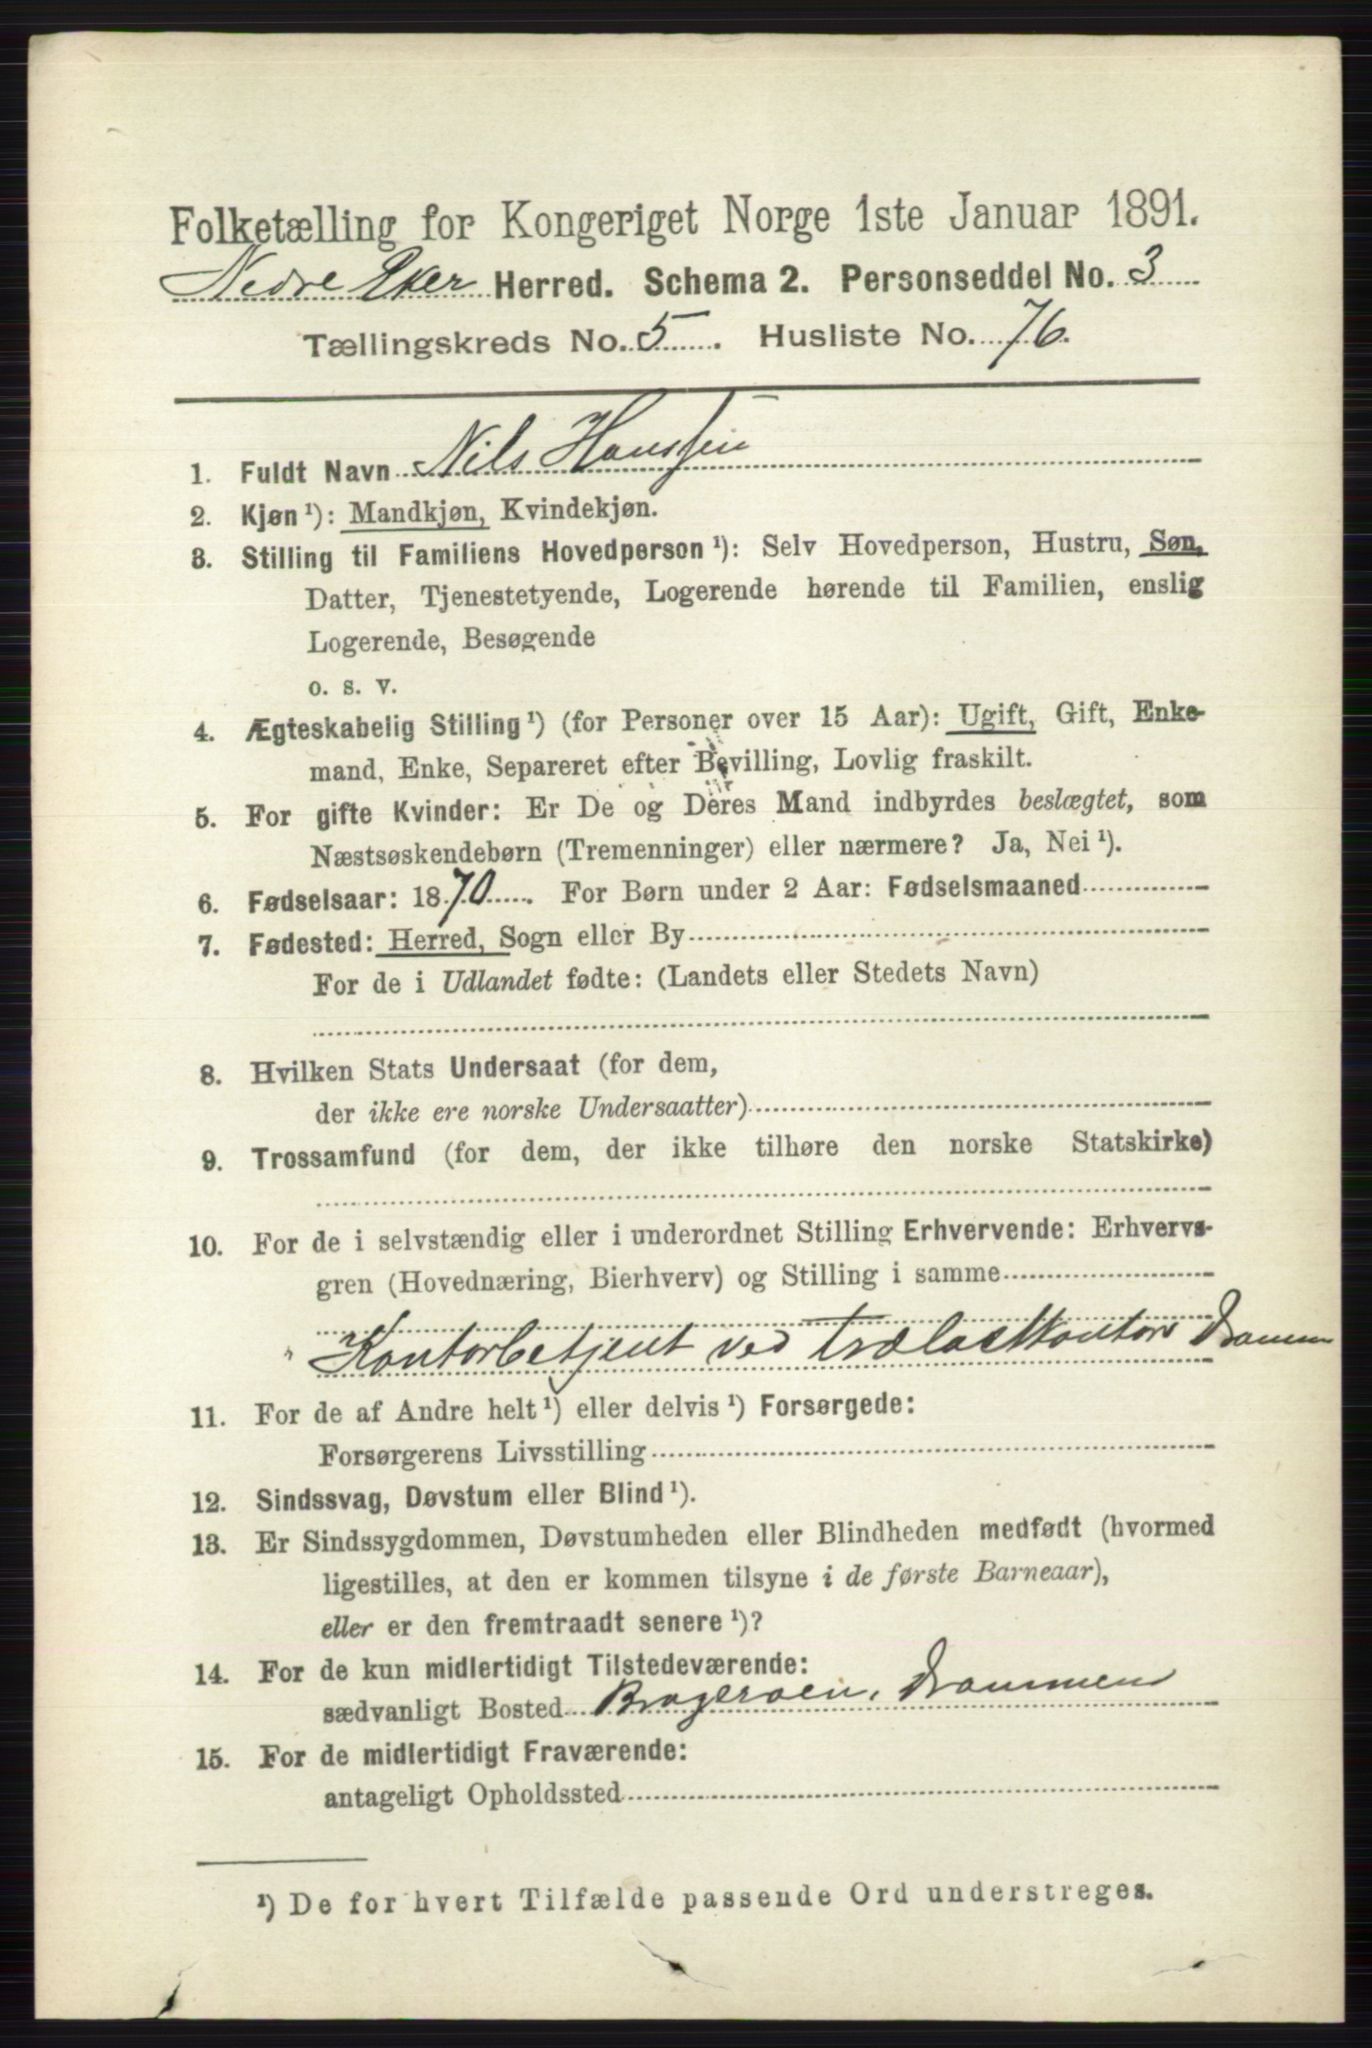 Folketælling for Kongeriget Norge 1ste Januar 1891.
Nedre Eker Herred. Schema 2. Personseddel No. 3
Tællingskreds No. 5. Husliste No. 76.
1. Fuldt Navn Nils Hanssen
2. Kjøn ¹): Mandkjøn, Kvindekjøn.
3. Stilling til Familiens Hovedperson ¹): Selv Hovedperson, Hustru, Søn,
Datter, Tjenestetyende, Logerende hørende til Familien, enslig
Logerende, Besøgende
o. s. v.
4. Ægteskabelig Stilling ¹) (for Personer over 15 Aar): Ugift, Gift, Enke-
mand, Enke, Separeret efter Bevilling, Lovlig fraskilt.
5. For gifte Kvinder: Er De og Deres Mand indbyrdes beslægtet, som
Næstsøskendebørn (Tremenninger) eller nærmere? Ja, Nei ¹).
6. Fødselsaar: 1870. For Børn under 2 Aar: Fødselsmaaned
7. Fødested: Herred, Sogn eller By
For de i Udlandet fødte: (Landets eller Stedets Navn)
8. Hvilken Stats Undersaat (for dem,
der ikke ere norske Undersaatter)
9. Trossamfund (for dem, der ikke tilhøre den norske Statskirke)
10. For de i selvstændig eller i underordnet Stilling Erhvervende: Erhvervs-
gren (Hovednæring, Bierhverv) og Stilling i samme
Kontorbetjent ved trælastkontor Dramm
11. For de af Andre helt ¹) eller delvis ¹) Forsørgede:
Forsørgerens Livsstilling
12. Sindssvag, Døvstum eller Blind ¹).
13. Er Sindssygdommen, Døvstumheden eller Blindheden medfødt (hvormed
ligestilles, at den er kommen tilsyne i de første Barneaar),
eller er den fremtraadt senere ¹)?
14. For de kun midlertidigt Tilstedeværende:
sædvanligt Bosted Brageroen, Drammen
15. For de midlertidigt Fraværende:
antageligt Opholdssted
¹) De for hvert Tilfælde passende Ord understreges.